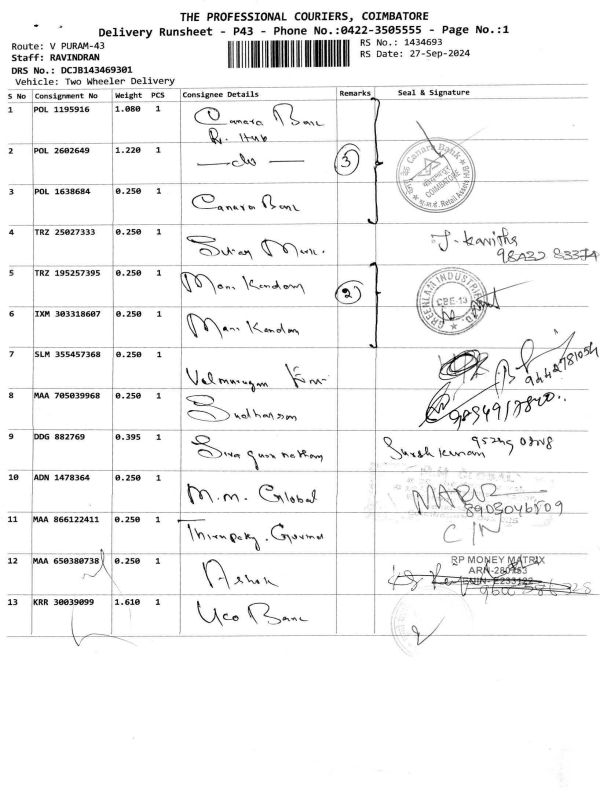 THE PROFESSIONAL COURIERS, COIMBATORE
Delivery Runsheet - P43 - Phone No.:0422-3505555 - Page No.:1
Route: V PURAM-43
RS No.: 1434693
Staff: RAVINDRAN
RS Date: 27-Sep-2024
DRS No.: DCJB143469301
Vehicle: Two Wheeler Delivery
S No Consignment No Weight PCS Consignee Details Remarks Seal & Signature
1 POL 1195916 1.080 1 Canara Bank
R. Hub
2 POL 2602649 1.220 1 — do — 3
Canara Bank
COIMBATORE
Retail Asset Hub
3 POL 1638684 0.250 1 Canara Bank
4 TRZ 25027333 0.250 1 J. Kavitha
5 TRZ 195257395 0.250 1 Mani Kandan 2
GREENLAM INDUSTRIES
CBE-13
6 IXM 303318607 0.250 1 Mani Kandan
7 SLM 355457368 0.250 1 Velmurugan
8 MAA 705039968 0.250 1
9 DDG 882769 0.395 1 Siva guru nathan Suresh kumar
10 ADN 1478364 0.250 1 M.M. Global
8903046809
11 MAA 866122411 0.250 1 CIN
12 MAA 650380738 0.250 1 Ashok RP MONEY MATRIX
13 KRR 30039099 1.610 1 Uco Bank